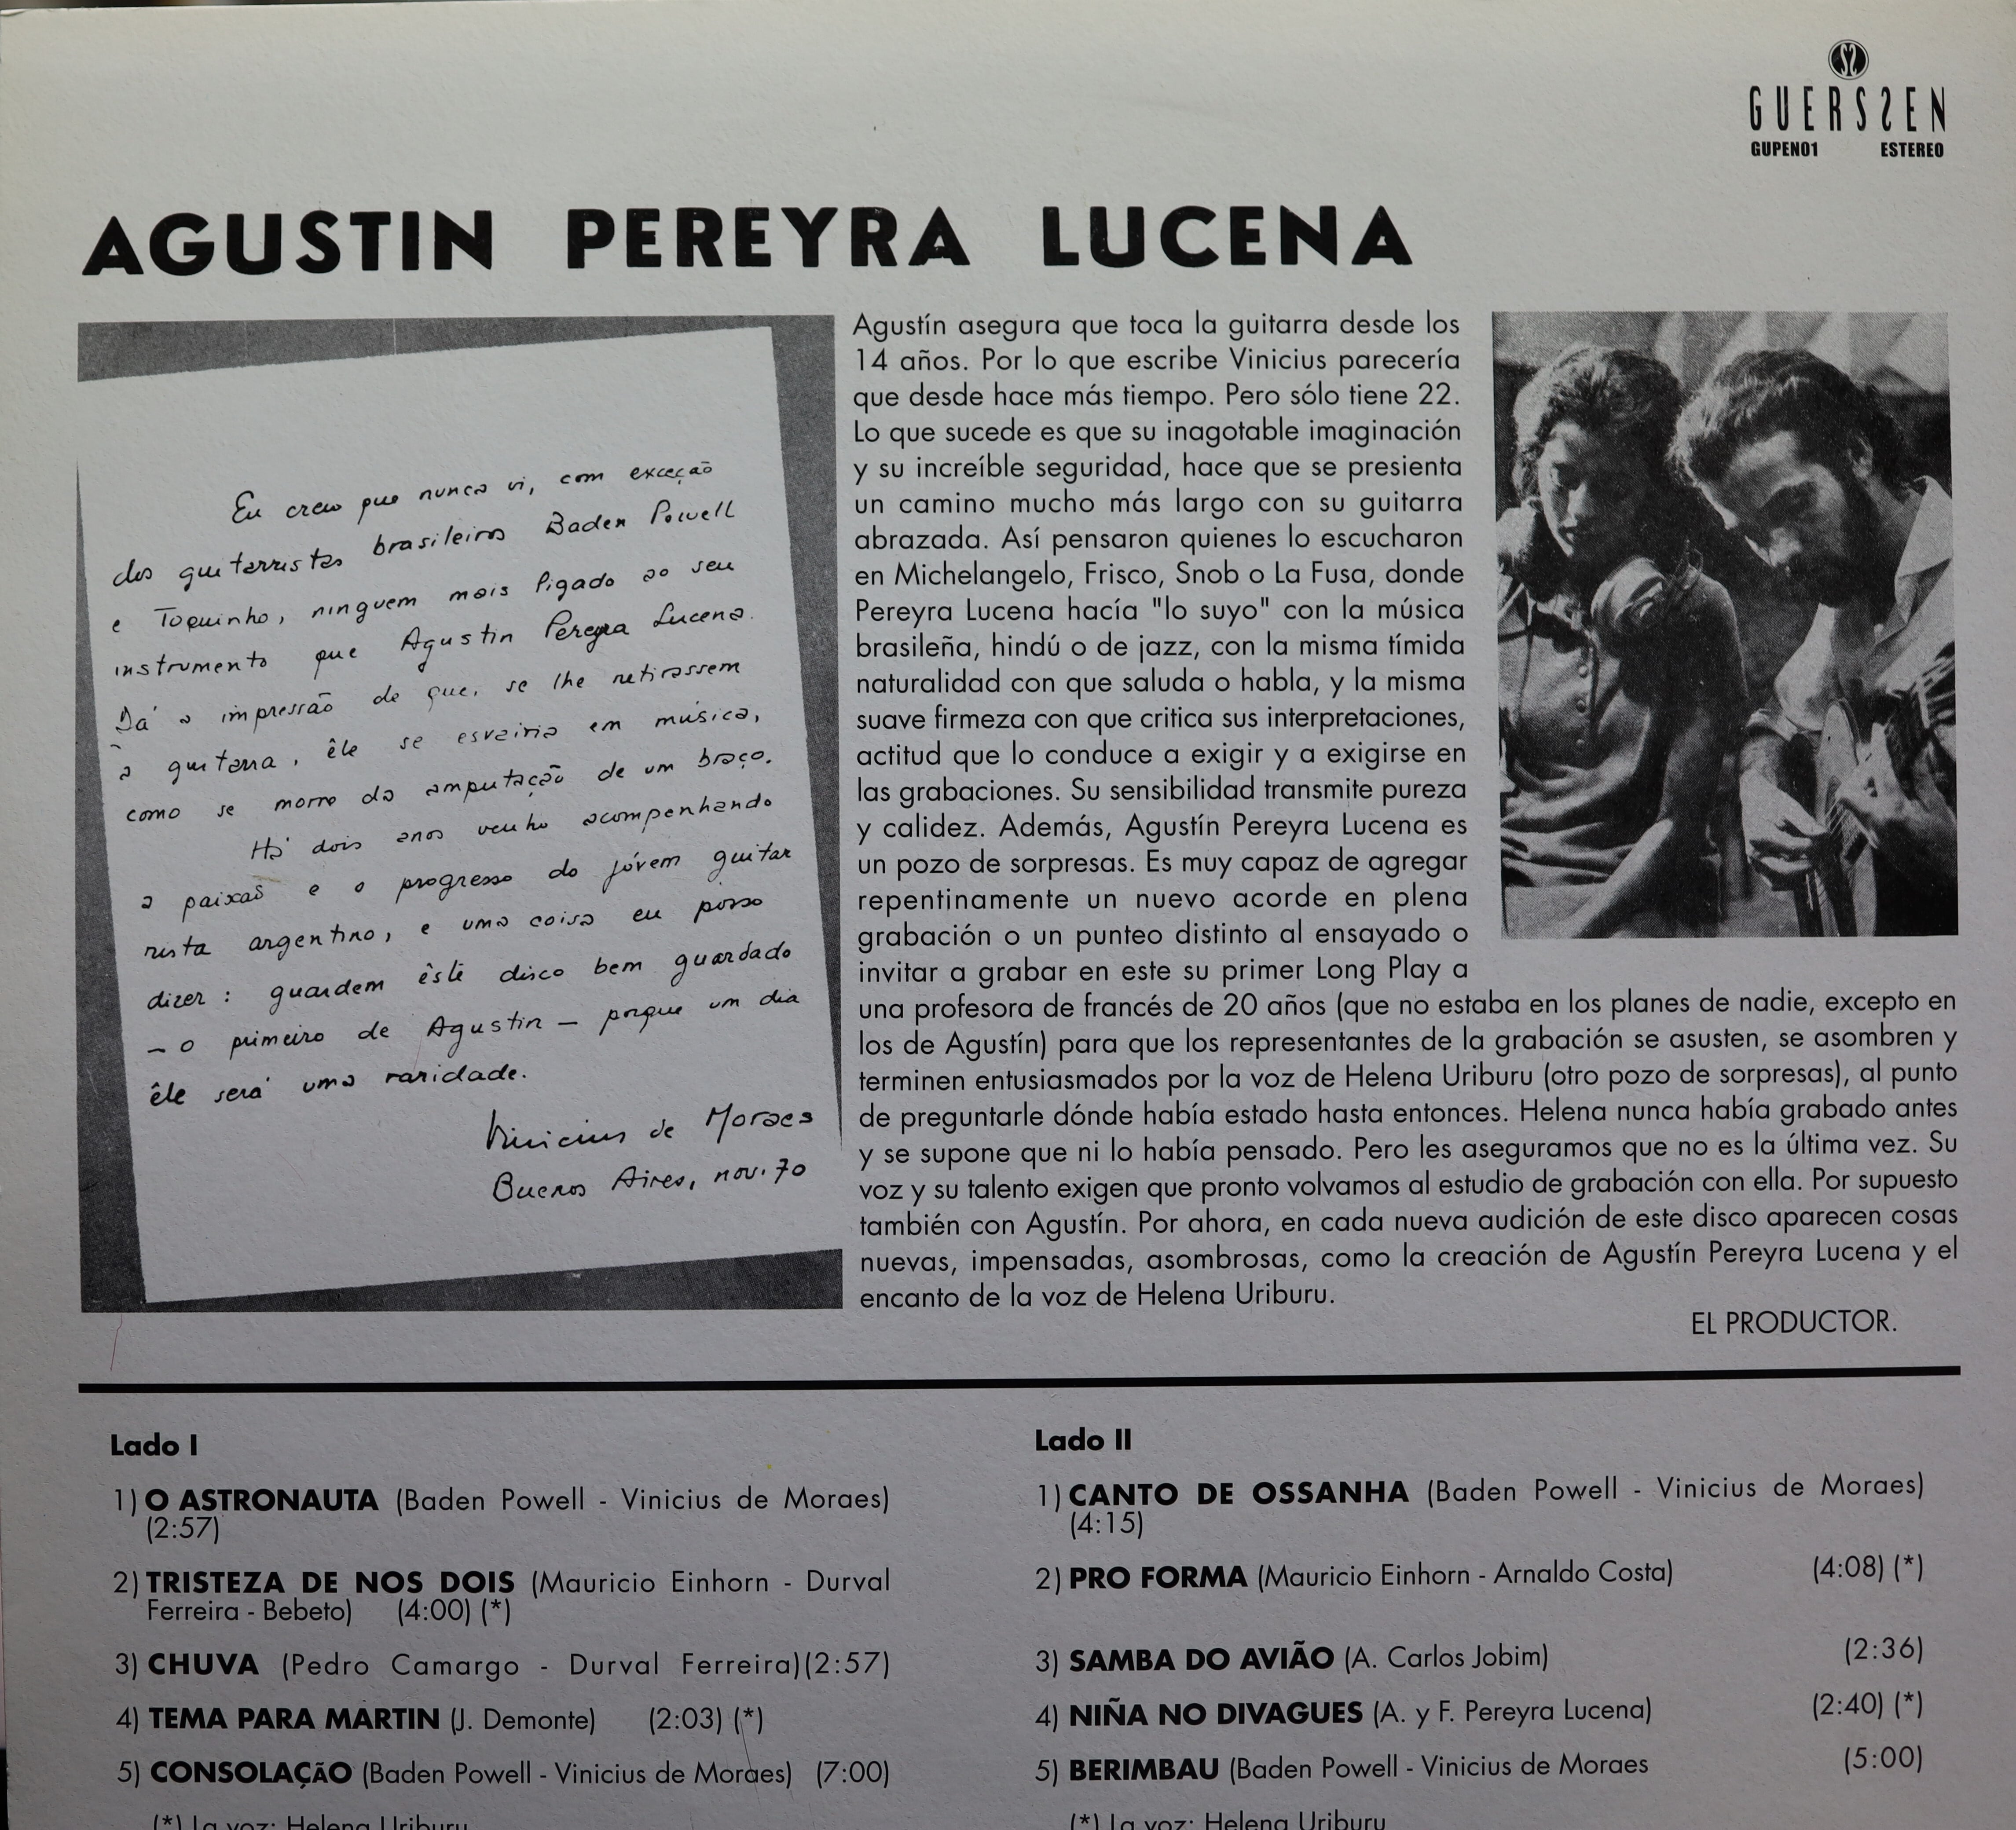 GUERSSEN
GUPEN01 ESTEREO
AGUSTIN PEREYRA LUCENA
Eu creio que nunca vi, com exceção
dos guitarristas brasileiros Baden Powell
e Toquinho, ninguem mais ligado ao seu
instrumento que Agustin Pereyra Lucena.
Dá a impressão de que, se lhe retirassem
a guitarra, êle se esvairia em música,
como se morre da amputação de um braço.
Há dois anos venho acompanhando
a paixão e o progresso do jóvem guitar
rista argentino, e uma coisa eu posso
dizer: guardem êste disco bem guardado
— o primeiro de Agustin — porque um dia
êle será uma raridade.
Vinicius de Moraes
Buenos Aires, nov. 70
Agustín asegura que toca la guitarra desde los
14 años. Por lo que escribe Vinicius parecería
que desde hace más tiempo. Pero sólo tiene 22.
Lo que sucede es que su inagotable imaginación
y su increíble seguridad, hace que se presienta
un camino mucho más largo con su guitarra
abrazada. Así pensaron quienes lo escucharon
en Michelangelo, Frisco, Snob o La Fusa, donde
Pereyra Lucena hacía "lo suyo" con la música
brasileña, hindú o de jazz, con la misma tímida
naturalidad con que saluda o habla, y la misma
suave firmeza con que critica sus interpretaciones,
actitud que lo conduce a exigir y a exigirse en
las grabaciones. Su sensibilidad transmite pureza
y calidez. Además, Agustín Pereyra Lucena es
un pozo de sorpresas. Es muy capaz de agregar
repentinamente un nuevo acorde en plena
grabación o un punteo distinto al ensayado o
invitar a grabar en este su primer Long Play a
una profesora de francés de 20 años (que no estaba en los planes de nadie, excepto en
los de Agustín) para que los representantes de la grabación se asusten, se asombren y
terminen entusiasmados por la voz de Helena Uriburu (otro pozo de sorpresas), al punto
de preguntarle dónde había estado hasta entonces. Helena nunca había grabado antes
y se supone que ni lo había pensado. Pero les aseguramos que no es la última vez. Su
voz y su talento exigen que pronto volvamos al estudio de grabación con ella. Por supuesto
también con Agustín. Por ahora, en cada nueva audición de este disco aparecen cosas
nuevas, impensadas, asombrosas, como la creación de Agustín Pereyra Lucena y el
encanto de la voz de Helena Uriburu.
EL PRODUCTOR.
Lado I
1) O ASTRONAUTA (Baden Powell - Vinicius de Moraes)
(2:57)
2) TRISTEZA DE NOS DOIS (Mauricio Einhorn - Durval
Ferreira - Bebeto) (4:00) (*)
3) CHUVA (Pedro Camargo - Durval Ferreira)(2:57)
4) TEMA PARA MARTIN (J. Demonte) (2:03) (*)
5) CONSOLAÇÃO (Baden Powell - Vinicius de Moraes) (7:00)
(*) La voz: Helena Uriburu
Lado II
1) CANTO DE OSSANHA (Baden Powell - Vinicius de Moraes)
(4:15)
2) PRO FORMA (Mauricio Einhorn - Arnaldo Costa) (4:08) (*)
3) SAMBA DO AVIÃO (A. Carlos Jobim) (2:36)
4) NIÑA NO DIVAGUES (A. y F. Pereyra Lucena) (2:40) (*)
5) BERIMBAU (Baden Powell - Vinicius de Moraes (5:00)
(*) La voz: Helena Uriburu